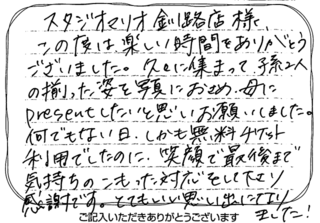 スタジオマリオ釧路店 様
この度は楽しい時間をありがとう
ございました。久々に集まって 子孫2人
の揃った姿を写真におさめ、母に
presentしたいと思いお願いしました。
何でもない日、しかも無料チケット
利用でしたのに、笑顔で最後まで
気持ちのこもった対応をして下さり
感謝です。とてもいい思い出になり
ました!
ご記入いただきありがとうございます